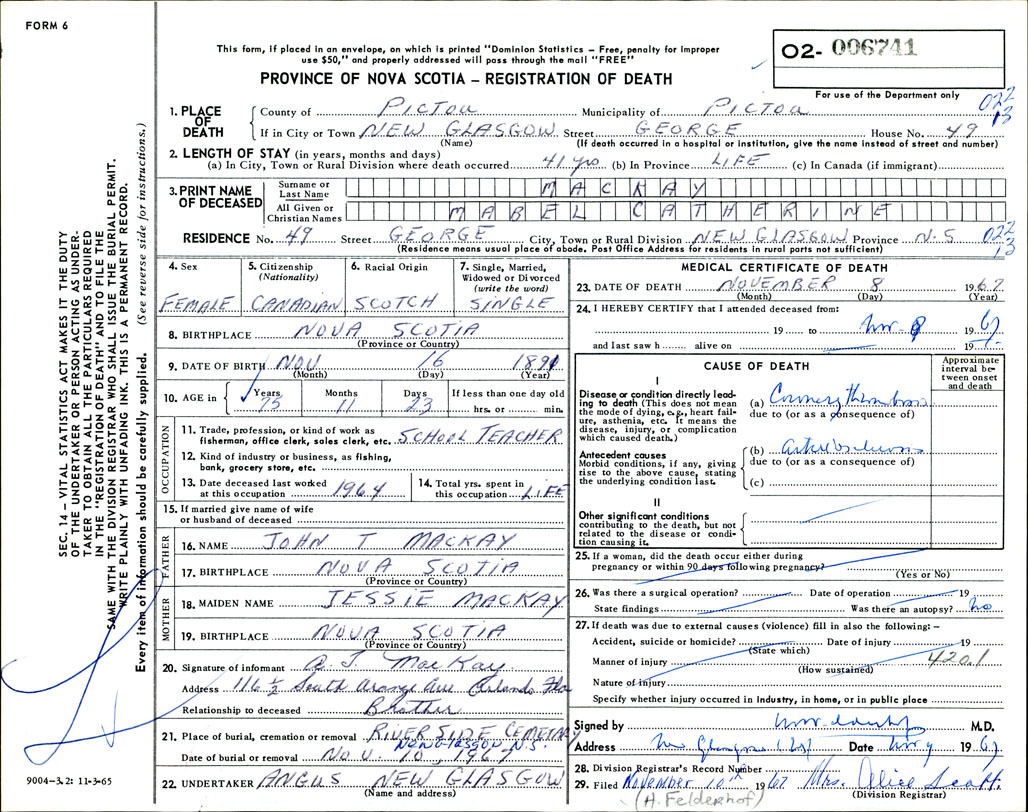 FORM 6
This form, if placed in an envelope, on which is printed "Dominion Statistics – Free, penalty for improper
use $50," and properly addressed will pass through the mail "FREE"
O2- 006741
PROVINCE OF NOVA SCOTIA – REGISTRATION OF DEATH
For use of the Department only
1. PLACE OF DEATH County of PICTOU Municipality of PICTOU 022 13
If in City or Town NEW GLASGOW Street GEORGE House No. 49
(Name) (If death occurred in a hospital or institution, give the name instead of street and number)
2. LENGTH OF STAY (in years, months and days)
(a) In City, Town or Rural Division where death occurred 41 yrs (b) In Province LIFE (c) In Canada (if immigrant)
3. PRINT NAME OF DECEASED Surname or Last Name MACKAY
All Given or Christian Names MABEL CATHERINE
RESIDENCE No. 49 Street GEORGE City, Town or Rural Division NEW GLASGOW Province N.S 022 13
(Residence means usual place of abode. Post Office Address for residents in rural parts not sufficient)
4. Sex FEMALE
5. Citizenship (Nationality) CANADIAN
6. Racial Origin SCOTCH
7. Single, Married, Widowed or Divorced (write the word) SINGLE
8. BIRTHPLACE NOVA SCOTIA
(Province or Country)
9. DATE OF BIRTH NOV 16 1891
(Month) (Day) (Year)
10. AGE in Years 75 Months 11 Days 23 If less than one day old hrs. or min.
OCCUPATION
11. Trade, profession, or kind of work as fisherman, office clerk, sales clerk, etc. SCHOOL TEACHER
12. Kind of industry or business, as fishing, bank, grocery store, etc.
13. Date deceased last worked at this occupation 1964
14. Total yrs. spent in this occupation LIFE
15. If married give name of wife or husband of deceased
FATHER
16. NAME JOHN T MACKAY
17. BIRTHPLACE NOVA SCOTIA
(Province or Country)
MOTHER
18. MAIDEN NAME JESSIE MACKAY
19. BIRTHPLACE NOVA SCOTIA
(Province or Country)
20. Signature of informant J. MacKay
Address 116 ½ South Orange Ave Orlando Fla
Relationship to deceased Brother
21. Place of burial, cremation or removal RIVERSIDE CEMETARY
NEW GLASGOW N.S.
Date of burial or removal NOV. 10, 1967
22. UNDERTAKER ANGUS NEW GLASGOW
(Name and address)
MEDICAL CERTIFICATE OF DEATH
23. DATE OF DEATH NOVEMBER 8 1967
(Month) (Day) (Year)
24. I HEREBY CERTIFY that I attended deceased from:
19 to Nov 8 1967
and last saw h alive on 19
CAUSE OF DEATH
Approximate interval between onset and death
I
Disease or condition directly leading to death (This does not mean the mode of dying, e.g., heart failure, asthenia, etc. It means the disease, injury, or complication which caused death.)
(a) Coronary thrombosis
due to (or as a consequence of)
Antecedent causes
Morbid conditions, if any, giving rise to the above cause, stating the underlying condition last.
(b)
due to (or as a consequence of)
(c)
II
Other significant conditions contributing to the death, but not related to the disease or condition causing it.
25. If a woman, did the death occur either during
pregnancy or within 90 days following pregnancy?
(Yes or No)
26. Was there a surgical operation? Date of operation 19
State findings Was there an autopsy? No
27. If death was due to external causes (violence) fill in also the following: –
Accident, suicide or homicide? Date of injury 19
(State which)
Manner of injury 420.1
(How sustained)
Nature of injury
Specify whether injury occurred in Industry, in home, or in public place
Signed by M.D.
Address New Glasgow Date Nov 9 1967
28. Division Registrar's Record Number
29. Filed November 10th 1967 Mrs. Alice Scott.
(Division Registrar)
(H. Felderhof)
SEC. 14 – VITAL STATISTICS ACT MAKES IT THE DUTY
OF THE UNDERTAKER OR PERSON ACTING AS UNDER-
TAKER TO OBTAIN ALL THE PARTICULARS REQUIRED
IN THE "REGISTRATION OF DEATH" AND TO FILE THE
SAME WITH THE DIVISION REGISTRAR WHO SHALL ISSUE THE BURIAL PERMIT.
WRITE PLAINLY WITH UNFADING INK. THIS IS A PERMANENT RECORD.
Every item of information should be carefully supplied. (See reverse side for instructions.)
9004-3.2: 11-3-65